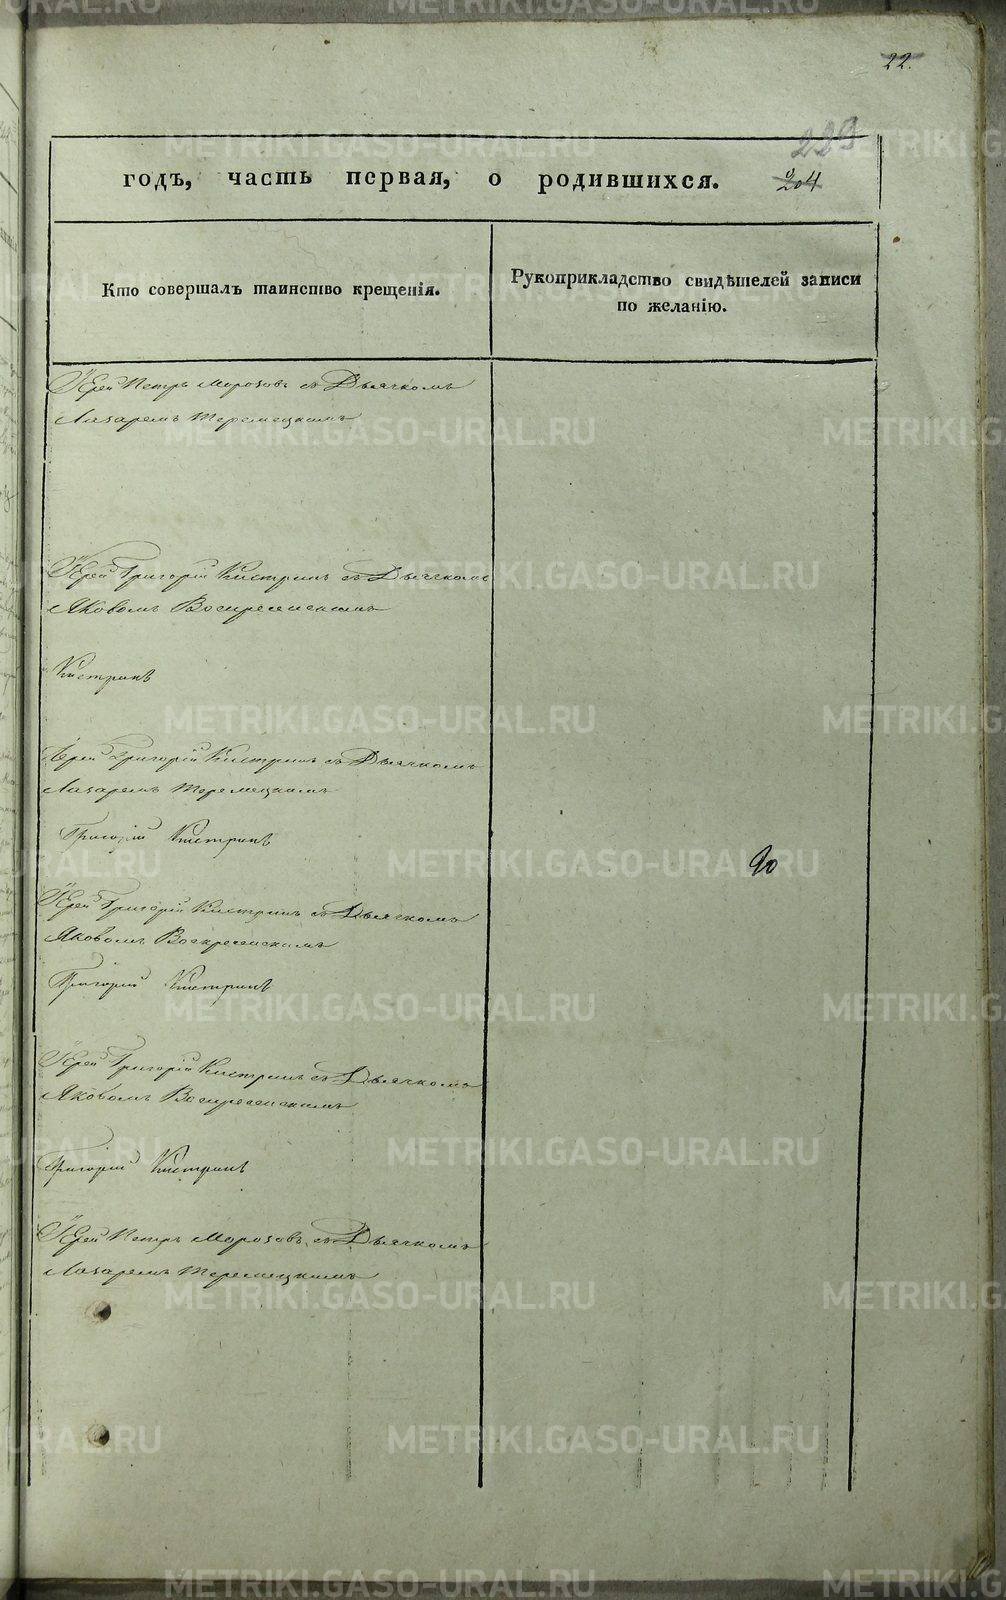 22.
223
204
годъ, часть первая, о родившихся.
Кто совершалъ таинство крещенія.
Рукоприкладство свидѣтелей записи
по желанію.
Іерей Петръ Морозовъ съ Дьячкомъ
Лазаремъ Теремецкимъ
Іерей Григорій Кистринъ съ Дьячкомъ
Яковомъ Воскресенскимъ
Кистринъ
Іерей Григорій Кистринъ съ Дьячкомъ
Лазаремъ Теремецкимъ
Григорій Кистринъ
90
Іерей Григорій Кистринъ съ Дьячкомъ
Яковомъ Воскресенскимъ
Григорій Кистринъ
Іерей Григорій Кистринъ съ Дьячкомъ
Яковомъ Воскресенскимъ
Григорій Кистринъ
Іерей Петръ Морозовъ съ Дьячкомъ
Лазаремъ Теремецкимъ
METRIKI.GASO-URAL.RU